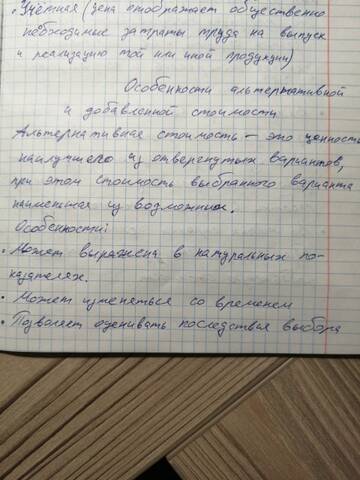 • Учётная (цена отображает общественно
необходимые затраты труда на выпуск
и реализацию той или иной продукции)
Особенности альтернативной
и добавленной стоимости.
Альтернативная стоимость – это ценность
наилучшего из отвергнутых вариантов,
при этом стоимость выбранного варианта
наименьшая из возможных.
Особенности:
• Может выражена в натуральных по-
казателях.
• Может изменяться со временем
• Позволяет оценивать последствия выбора